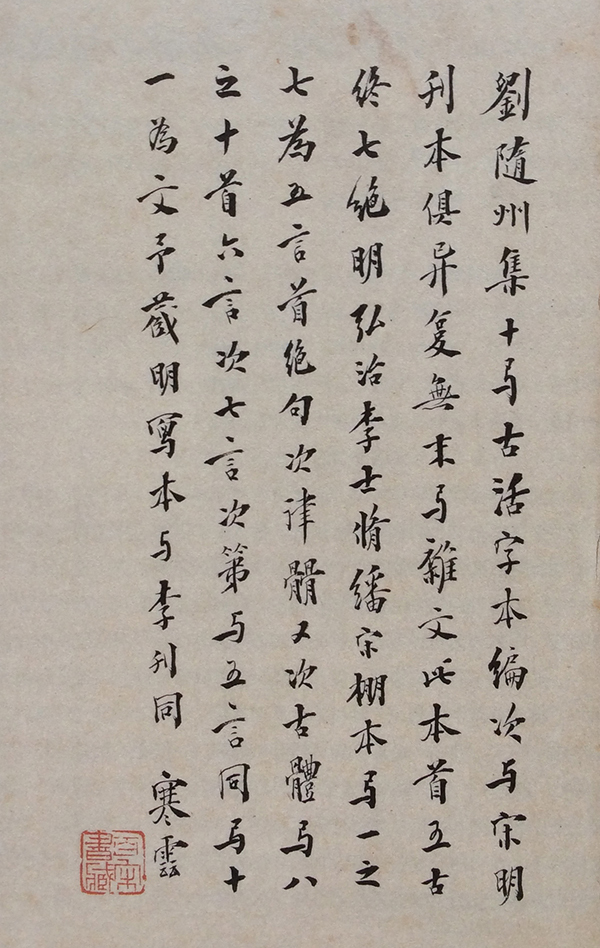 劉隨州集十弓古活字本編次与宋明
刊本俱异复無末弓雜文此本首五古
終七絶明弘治李士脩繙宋棚本弓一之
七為五言首絶句次律體又次古體弓八
之十首六言次七言次第与五言同弓十
一為文予藏明寫本与李刊同 寒雲
百宋書藏